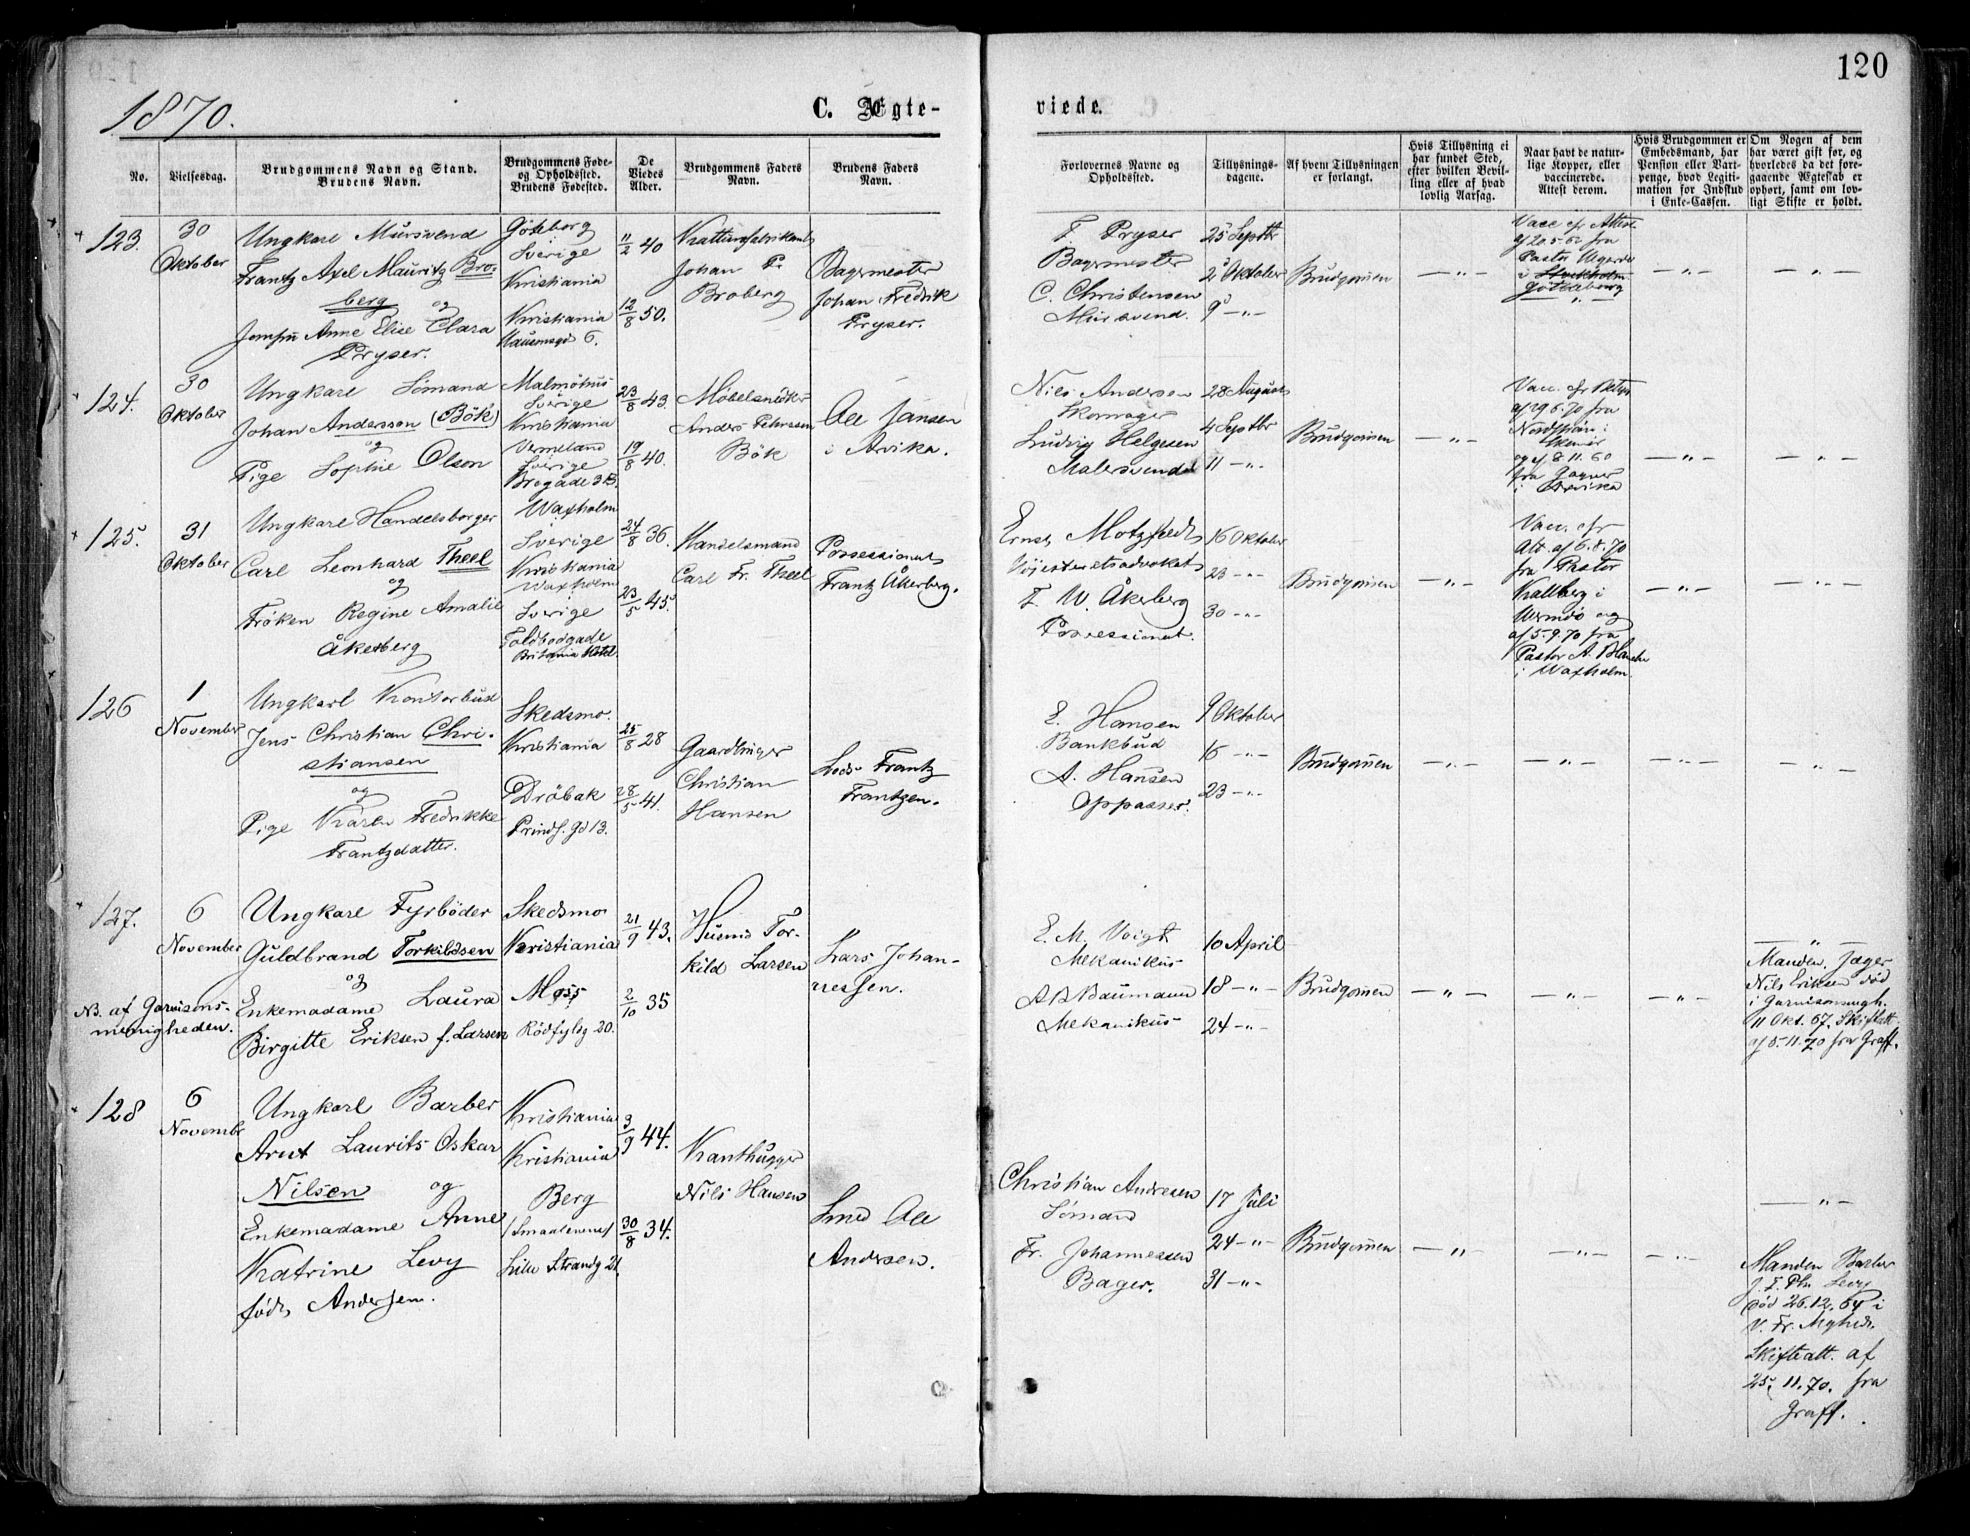 120
1870.
C. Ægte-
viede.
No.
Vielsesdag.
Brudgommens Navn og Stand.
Brudens Navn.
Brudgommens Føde-
og Opholdssted.
Brudens Fødested.
De
Viedes
Alder.
Brudgommens Faders
Navn.
Brudens Faders
Navn.
Forlovernes Navne og
Opholdssted.
Tillysnings-
dagene.
Af hvem Tillysningen
er forlangt.
Hvis Tillysning ei
har fundet Sted,
efter hvilken Bevil-
ling eller af hvad
lovlig Aarsag.
Naar havt de natur-
lige Kopper, eller
vaccinerede.
Attest derom.
Hvis Brudgommen er
Embedsmand, har
Pension eller Vart-
penge, hvad Legiti-
mation for Indskud
i Enke-Cassen.
Om Nogen af dem
har været gift før, og
hvorledes da det fore-
gaaende Ægteskab er
ophørt, samt om lov-
ligt Skifte er holdt.
123.
30
Oktober
Ungkarl Mursvend
Frantz Axel Mauritz Bro-
berg og
Jomfru Anne Elise Clara
Pryser.
Göteborg
Sverige
Kristiania
Kristiania
11/2 40
12/8 50.
Kattunfabrikant
Johan P.
Broberg
Bagermester
Johan Fredrik
Pryser.
F. Pryser
Bagermester
C. Christensen
Mursvend.
25 Septbr
2 Oktober
9 -"-
Brudgommen
-"-
Vacc efr Attest
af 20.5.60 fra
Pastor
i Stockholm
Göteborg
-"-
-"-
124.
30
Oktober
Ungkarl Sömand
Johan Andersson (Bök)
og
Pige Sophie Olson
Malmöhus
Sverige
Kristiania
Vermeland
Sverige
Brogade 3 B.
23/8 43.
19/8 40.
Möbelsnidker
Anders Pehrssen
Bök
Ole Jansen
i Arvika.
Nils Andersen
Skomager
Ludvig Helgesen
Malersvend
28 August
4 Septbr
11 -"-
Brudgommen
-"-
Vacc. efr
af 29.6.70 fra
i
og af 8.11.60
fra
i Arvika
-"-
-"-
125.
31
Oktober
Ungkarl Handelsborger
Carl Leonhard Theel
og
Fröken Regine Amalie
Åkerberg
Waxholm
Sverige
Kristiania
Waxholm
Sverige
Toldbodgade
Britania Hotel.
24/8 36.
23/5 45
Handelsmand
Carl Fr. Theel
Possessionat
Frantz Åkerberg.
Ernst Motzfeldt
Höiesteretsadvokat
F. W. Åkerberg
Possessionat.
16 Oktober
23 -"-
30 -"-
Brudgommen
-"-
Vacc. efr
Att. af 6.8.70
fra Pastor
Kallberg i
Wermdö og
af 5.9.70 fra
Pastor A. Blanche
i Waxholm.
-"-
-"-
126
1
November
Ungkarl Kontorbud
Jens Christian Chri-
stiansen
og
Pige Karen Fredrikke
Frantzdatter.
Skedsmo.
Kristiania
Dröbak
Prinds. gd 13.
25/8 28
28/5 41.
Gaardbruger
Christian
Hansen
Lods Frantz
Frantzen.
E. Hansen
Bankbud
A. Hansen
Oppasser.
9 Oktober
16 -"-
23 -"-
Brudgommen
-"-
-"-
-"-
-"-
127.
6
November
Ungkarl Fyrböder
Guldbrand Torkildsen
og
NB. af Garnisons-
menigheden.
Enkemadame Laura
Birgitte Eriksen f. Larsen
Skedsmo
Kristiania
Moss
Rödfylsg 20.
21/9 43.
2/10 35
Husmd Tor-
kild Larsen
Lars Johan-
nessen.
E. M. Voigt
Mekanikus
A B Baumann
Mekanikus
10 April
18 -"-
24 -"-
Brudgommen
-"-
-"-
-"-
-"-
Manden, Jæger
Nils Eriksen död
i Garnisonsmgh.
11 Okt. 67. Skifteatt
af 5.11.70 fra Graff.
128
6
Novembr
Ungkarl Barber
Arnt Laurits Oskar
Nilsen og
Enkemadame Anne
Katrine Levy
födt Andersen.
Kristiania
Kristiania
Berg
(Smaalenene)
Lille Strandg 21.
3/9 44.
30/8 34.
Kanthugger
Nils Hansen
Smed Ole
Andersen.
Christian Andresen
Sömand
Fr. Johannessen
Bager.
17 Juli
24 -"-
31 -"-
Brudgommen
-"-
-"-
-"-
-"-
Manden Barber
J. F. Levy
död 26.12.64 i
V. Fr. Mghed.
Skifteatt. af
25. 11. 70. fra
Graff.